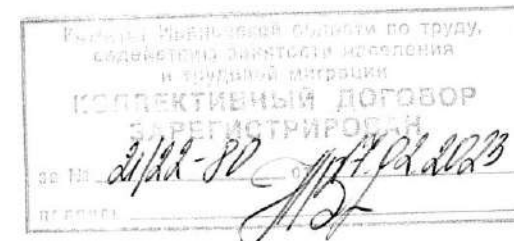 Комитет Ивановской области по труду,
содействию занятости населения
и трудовой миграции
КОЛЛЕКТИВНЫЙ ДОГОВОР
ЗАРЕГИСТРИРОВАН
за № 21/22-80 от 17.02.2023
подпись